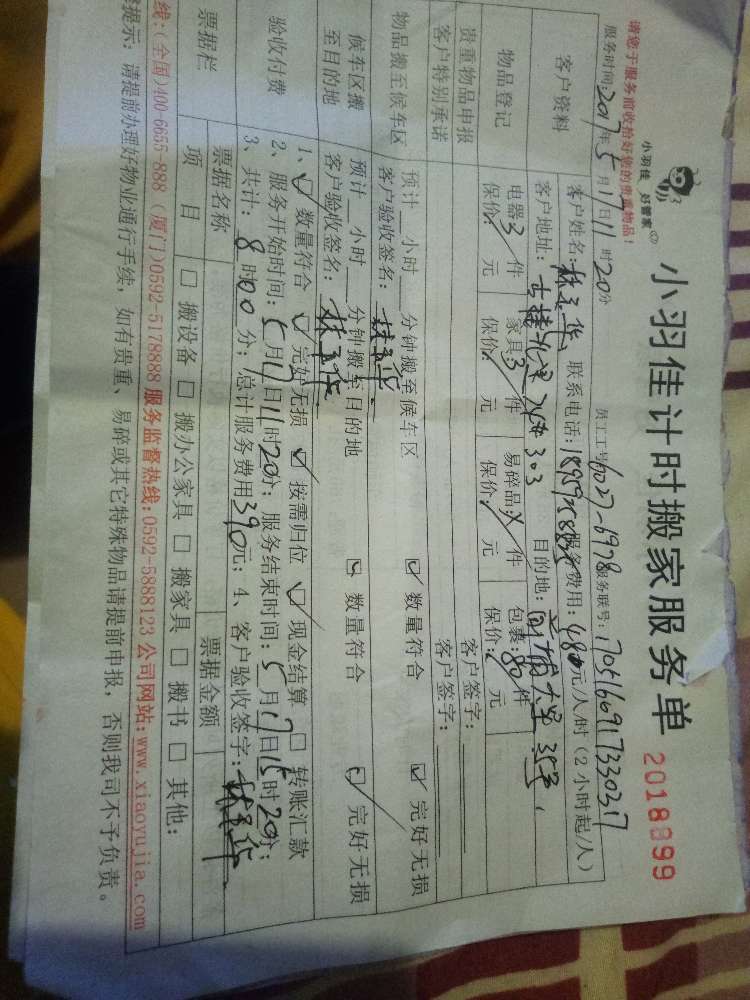 小羽佳 好管家
小羽佳计时搬家服务单
2018899
请您于服务前收拾好您的贵重物品!
服务时间:2017年5月17日11时20分 员工工号:6027-6978 服务联号:170516691733037
客户资料
客户姓名: 联系电话: 服务费用: 元/人/时(2小时起/人)
客户地址: 303 目的地:
物品登记
电器3件 家具3件 易碎品 件 包裹:80件
保价: 元 保价: 元 保价: 元 保价: 元
贵重物品申报 客户签字:
客户特别承诺 客户签字:
物品搬至候车区
预计 小时 分钟搬至候车区 ☑数量符合 ☑完好无损
客户验收签名:
候车区搬至目的地
预计 小时 分钟搬至目的地 ☑数量符合 ☑完好无损
客户验收签名:
验收付费
1、☑数量符合 ☑完好无损 ☑按需归位 ☑现金结算 □转账汇款
2、服务开始时间:5月17日11时20分; 服务结束时间:5月17日15时20分;
3、共计:8时00分; 总计服务费用390元; 4、客户验收签字:
票据栏
票据名称 票据金额
项目 □搬设备 □搬办公家具 □搬家具 □搬书 □其他:
线:(全国)400-6655-888 (厦门)0592-5178888 服务监督热线:0592-5888123 公司网站:www.xiaoyujia.com
提示: 请提前办理好物业通行手续, 如有贵重、易碎或其它特殊物品请提前申报, 否则我司不予负责。